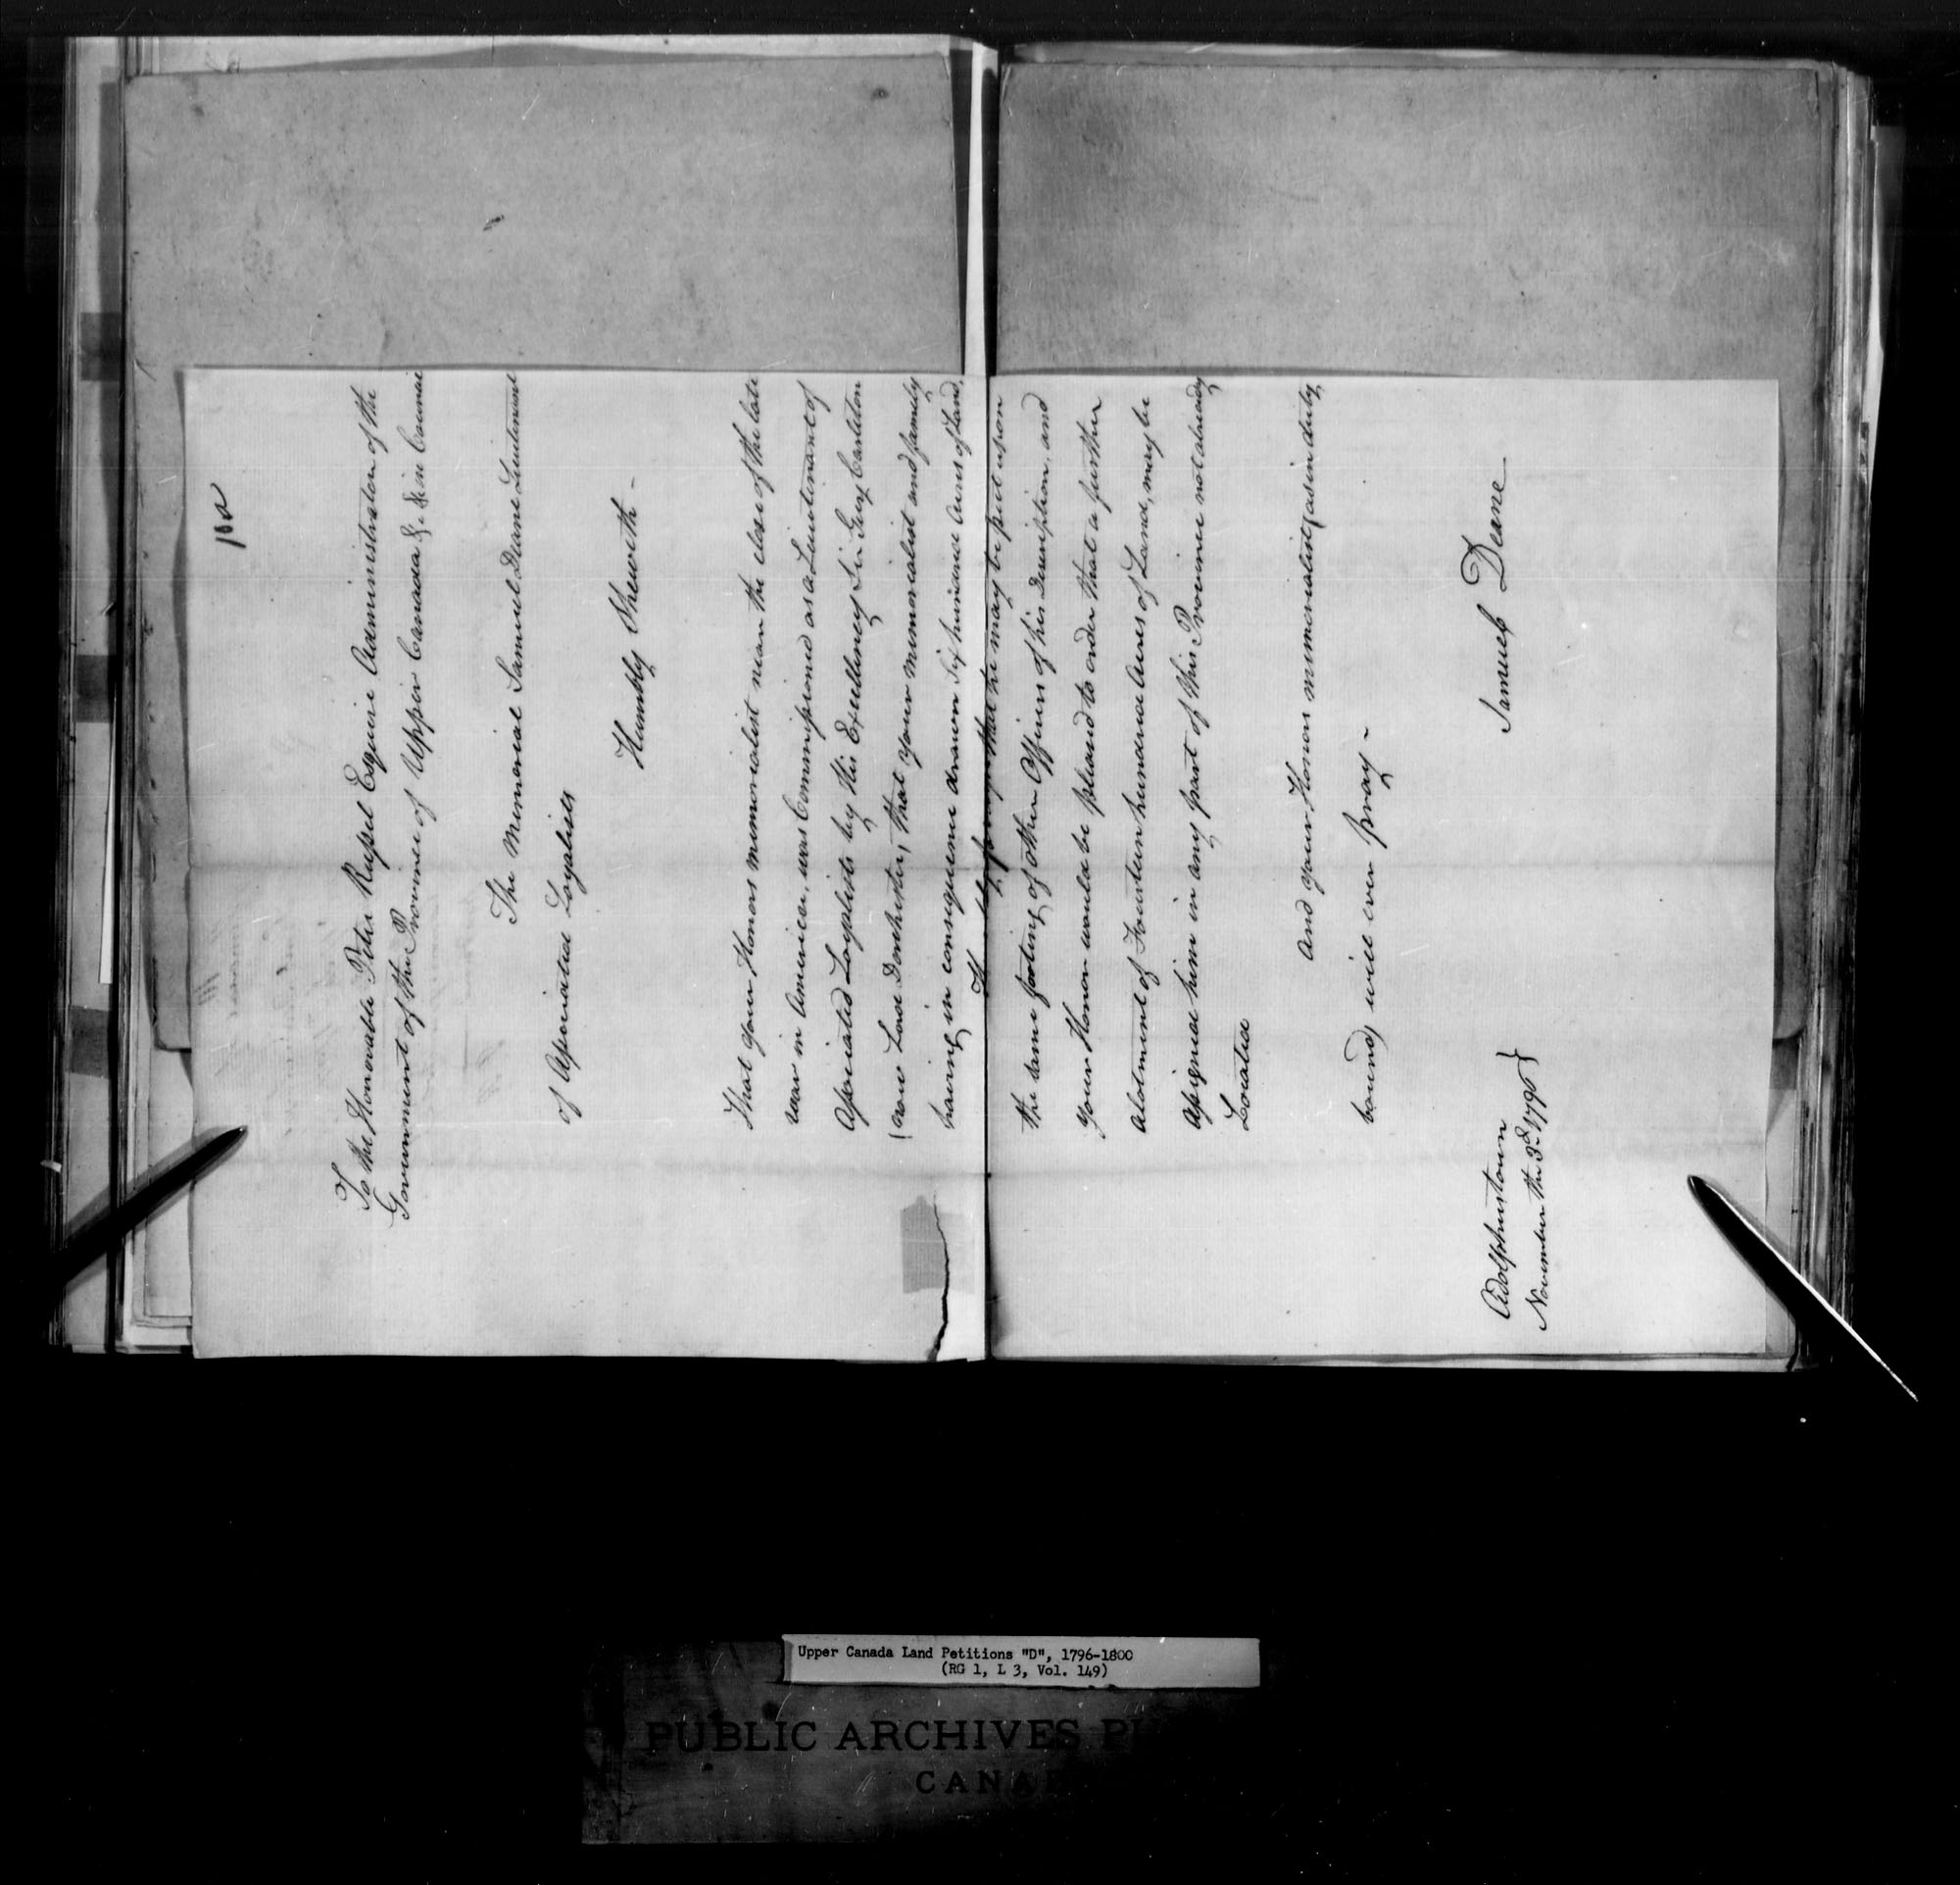 110
To the Honorable Peter Russel Esquire Administrator of the
Government of the Province of Upper Canada &c &c in Council
The Memorial Samuel Deane Lieutenant
of Associated Loyalists
Humbly Sheweth -
That your Honors memorialist near the close of the late
war in America, was Commissioned as a Lieutinant of
Associated Loyalists by His Excellency Sir Guy Carleton
(now Lord Dorchester, that your memorialist and family
having in consequence drawn Six hundred Acres of Land,
that he may be put upon
the same footing of other Officers of his Description, and
your Honor would be pleased to order that a further
alotment of Fourteen hundred Acres of Land, may be
assigned him in any part of this Province not already
Located
And your Honors memorialist (as in duty
bound) will ever pray -
Samuel Deane
Adolphustown
November the 3d 1796 }
Upper Canada Land Petitions "D", 1796-1800
(RG 1, L 3, Vol. 149)
PUBLIC ARCHIVES
CANA